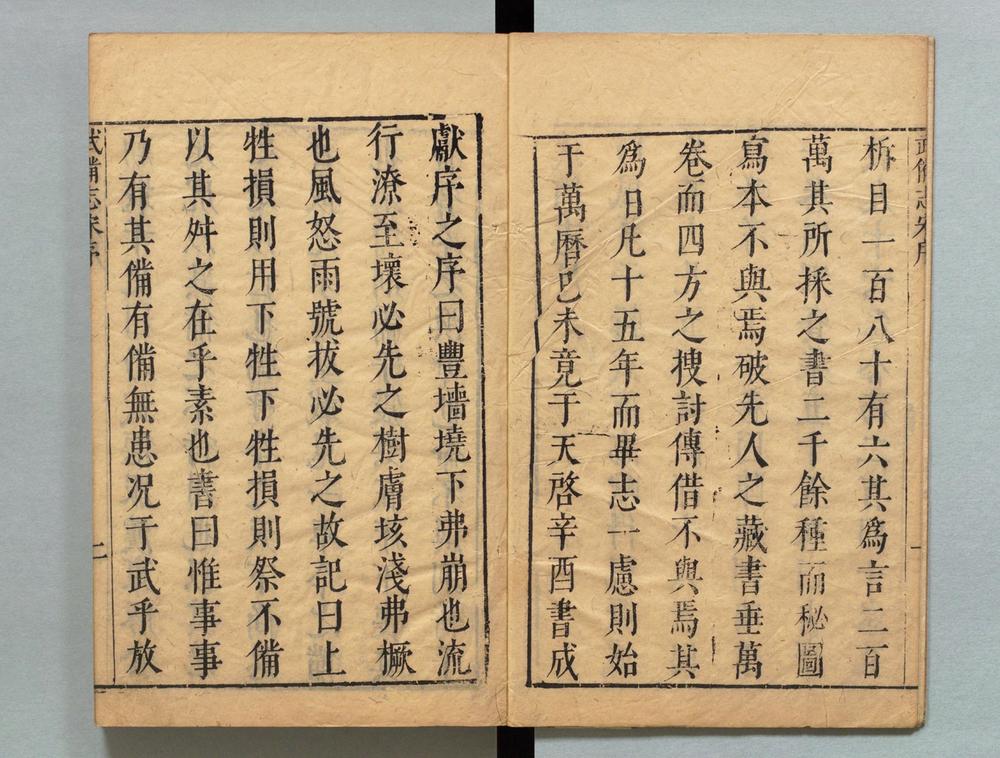 武備志宋序
析目一百八十有六其爲言二百
萬其所採之書二千餘種而秘圖
寫本不與焉破先人之藏書垂萬
卷而四方之搜討傳借不與焉其
爲日凡十五年而畢志一慮則始
于萬曆己未竟于天啓辛酉書成
獻序之序曰豐墻墝下弗崩也流
行潦至壞必先之樹膚垓淺弗橛
也風怒雨號拔必先之故記曰上
牲損則用下牲下牲損則祭不備
以其舛之在乎素也書曰惟事事
乃有其備有備無患况于武乎放
武備志宋序
二